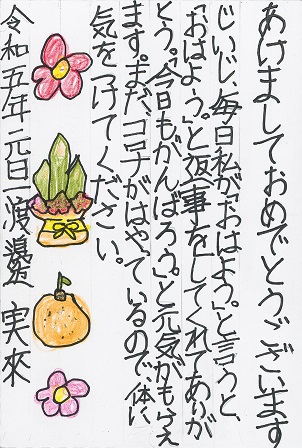 あけましておめでとうございます
じいじ、毎日私が「おはよう。」と言うと、
「おはよう。」と返事をしてくれてありが
とう。「今日もがんばろう。」と元気がもらえ
ます。まだコロナがはやっているので、体に
気をつけてください。
令和五年元日 渡邉 実來